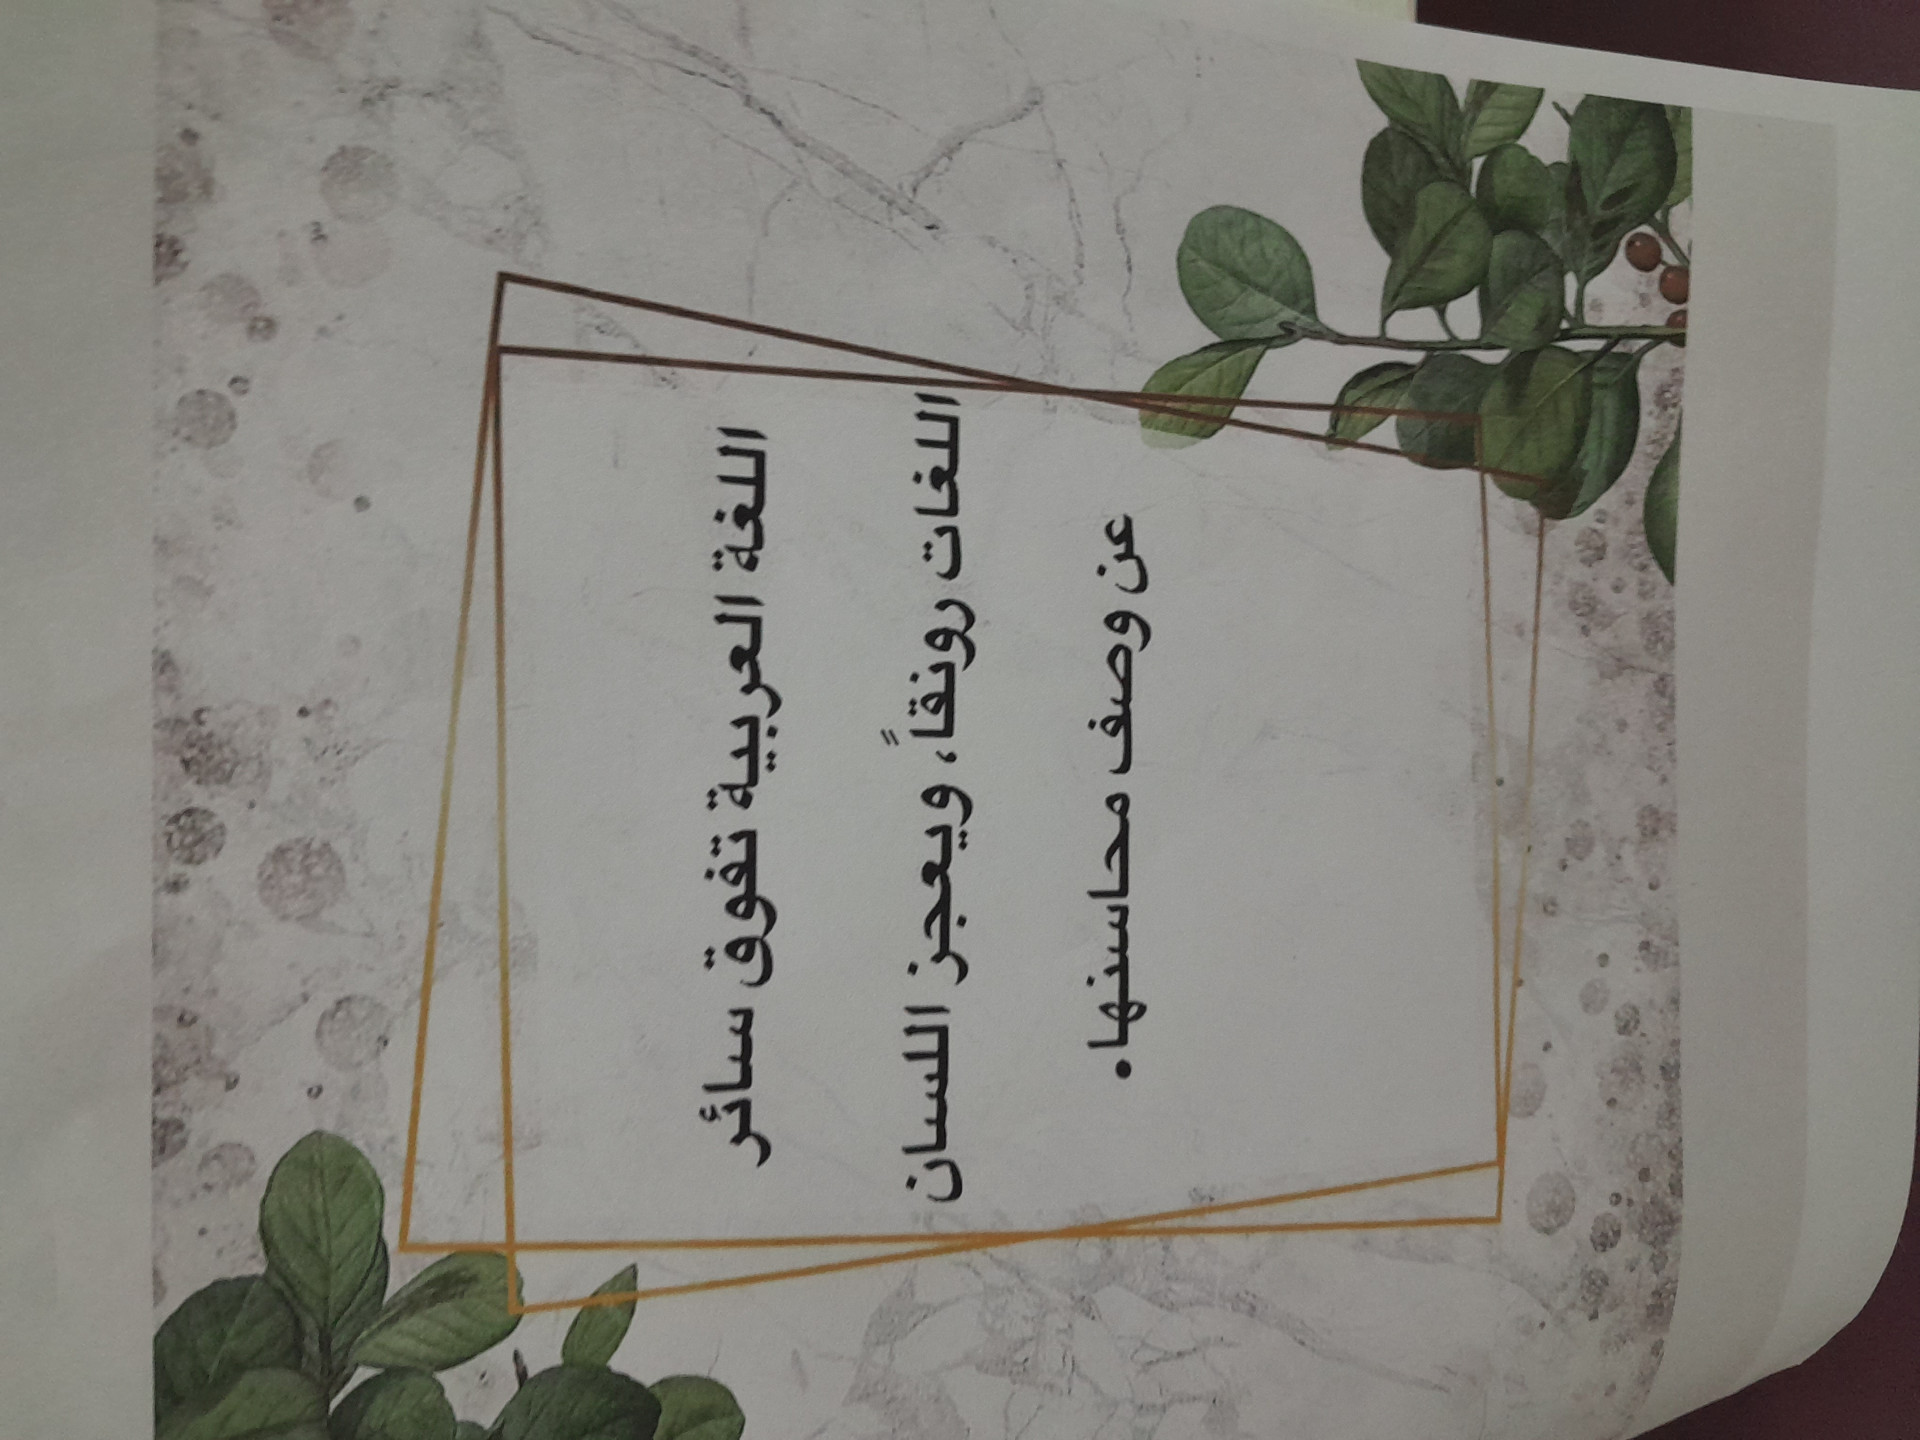 اللغة العربية تفوق سائر
اللغات رونقاً، ويعجز اللسان
عن وصف محاسنها.